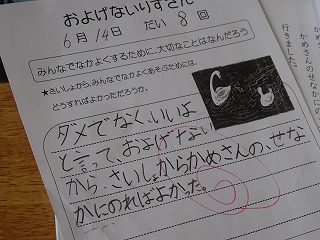 およげないりすさん
6月14日 だい8回
みんなでなかよくするために、大切なことはなんだろう
★さいしょから、みんなでなかよくあそぶためには、
どうすればよかっただろうか。
ダメでなくいいよ
と言って、およげない
から、さいしょからかめさんの、せな
かにのればよかた。
かめさんのせなかにの
行きました。